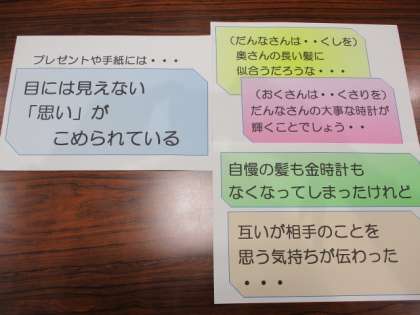 プレゼントや手紙には・・・
目には見えない
「思い」が
こめられている
(だんなさんは・・くしを)
奥さんの長い髪に
似合うだろうな・・・
(おくさんは・・くさりを)
だんなさんの大事な時計が
輝くことでしょう・・
自慢の髪も金時計も
なくなってしまったけれど
互いが相手のことを
思う気持ちが伝わった
・・・